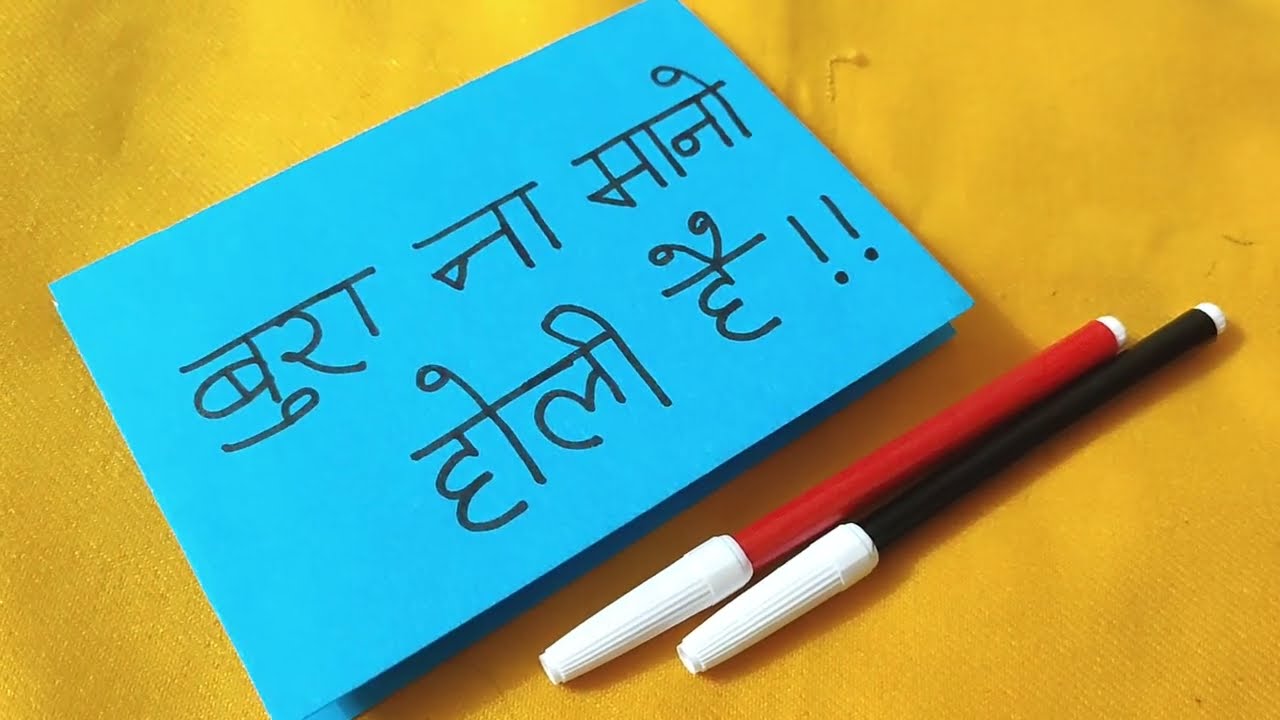 बुरा ना मानो
होली है !!